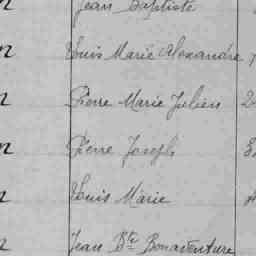 n Jean Baptiste
n Louis Marie Alexandre
n Pierre Marie Julien 2
n Pierre Joseph
n Louis Marie
n Jean Bte Bonaventure